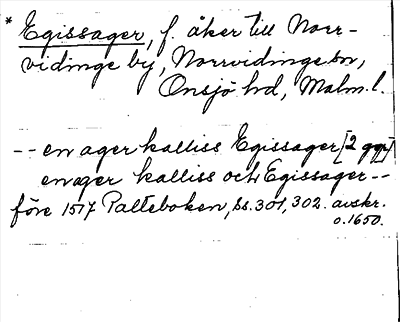 * Egissager, f. åker till Norr-
vidinge by, Norrvidinge sn,
Onsjö hd, Malm. l.
-- en ager kalliss Egissager [2 ggr]
en ager kalliss och Egissager --
före 1517 Palteboken, ss. 301, 302. avskr.
o. 1650.